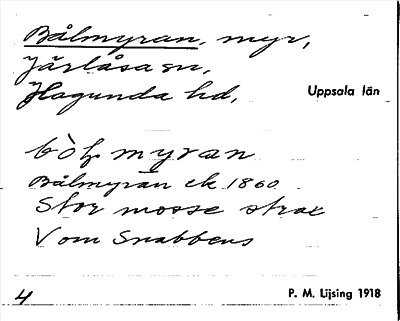 Bålmyran, myr,
Järlåsa sn,
Hagunda hd, Uppsala län
myran
Bålmyran ek 1860
Stor mosse strax
V om Snabbens
4 P. M. Lijsing 1918